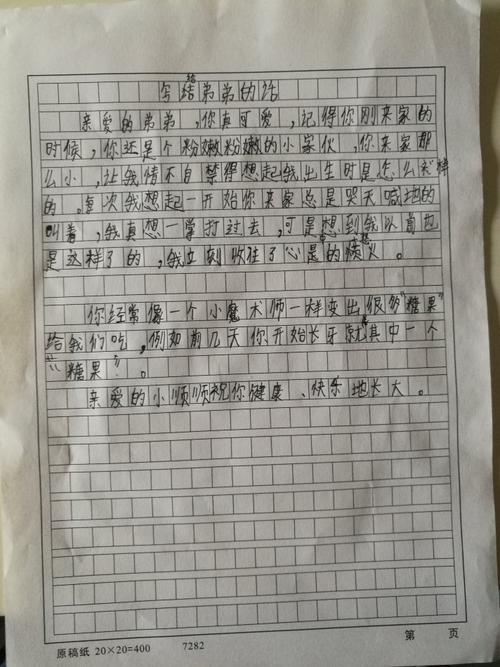 写给弟弟的话
亲爱的弟弟，你真可爱，记得你刚来家的
时候，你还是个粉嫩粉嫩的小家伙，你来家那
么小，让我情不自禁得想起我出生时是怎么样
的。每次我想起一开始你来家总是哭天喊地的
叫着，我真想一掌打过去，可是想到我以前也
是这样了的，我立刻收住了心里的愤火。
你经常像一个小魔术师一样变出很多“糖果”
给我们吃，例如前几天你开始长牙就是其中一个
“糖果”。
亲爱的小顺顺祝你健康、快乐地长大。
原稿纸 20×20=400 7282 第 页